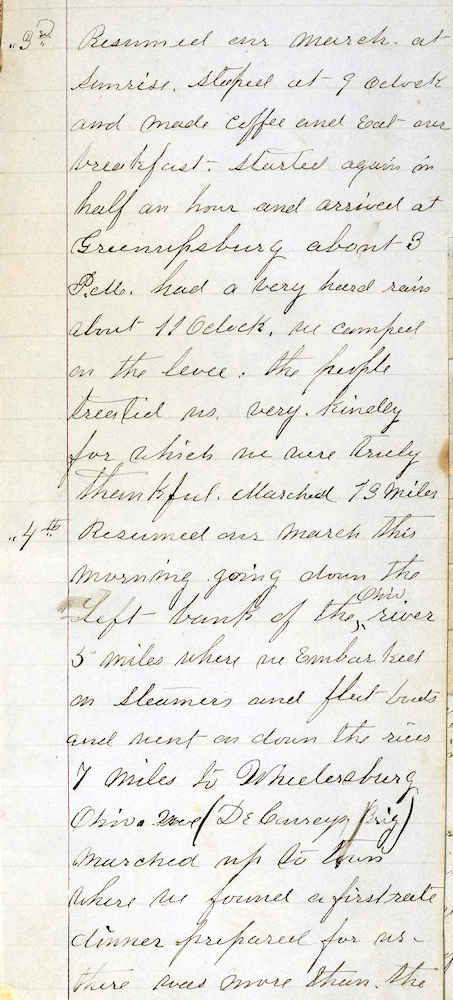 "3rd Resumed our march. at
sunrise. stoped at 9 Oclock
and made coffee and Eat our
breakfast. started again in
half an hour and arrived at
Greenupsburg about 3
P.M. had a very hard rain
about 11 Oclock. we camped
on the levee. the people
treated us. very. kindley
for which we were truly
thankful. Marched 13 miles
"4th Resumed our march this
morning going down the
left bank of the Ohio river
5 miles where we Embarked
on steamers and flat boats
and went on down the river
7 miles to Wheelersburg
Ohio. We (De Courcys Brig)
marched up to town
where we found a first rate
dinner prepared for us.
there was more than. the